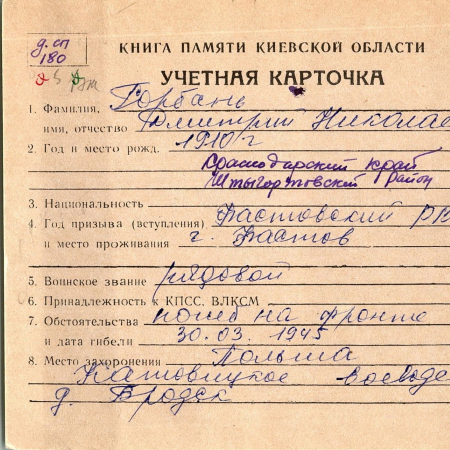 д. сп
180
КНИГА ПАМЯТИ КИЕВСКОЙ ОБЛАСТИ
УЧЕТНАЯ КАРТОЧКА
1. Фамилия, Горбань
имя, отчество Дмитрий Николае
2. Год и место рожд. 1910 г
Краснодарский край
район
3. Национальность
4. Год призыва (вступления) Фастовский РВ
и место проживания г. Фастов
5. Воинское звание рядовой
6. Принадлежность к КПСС, ВЛКСМ
7. Обстоятельства погиб на фронте
и дата гибели 30.03.1945
8. Место захоронения Польша
Катовицкое воевод
д. Бродек